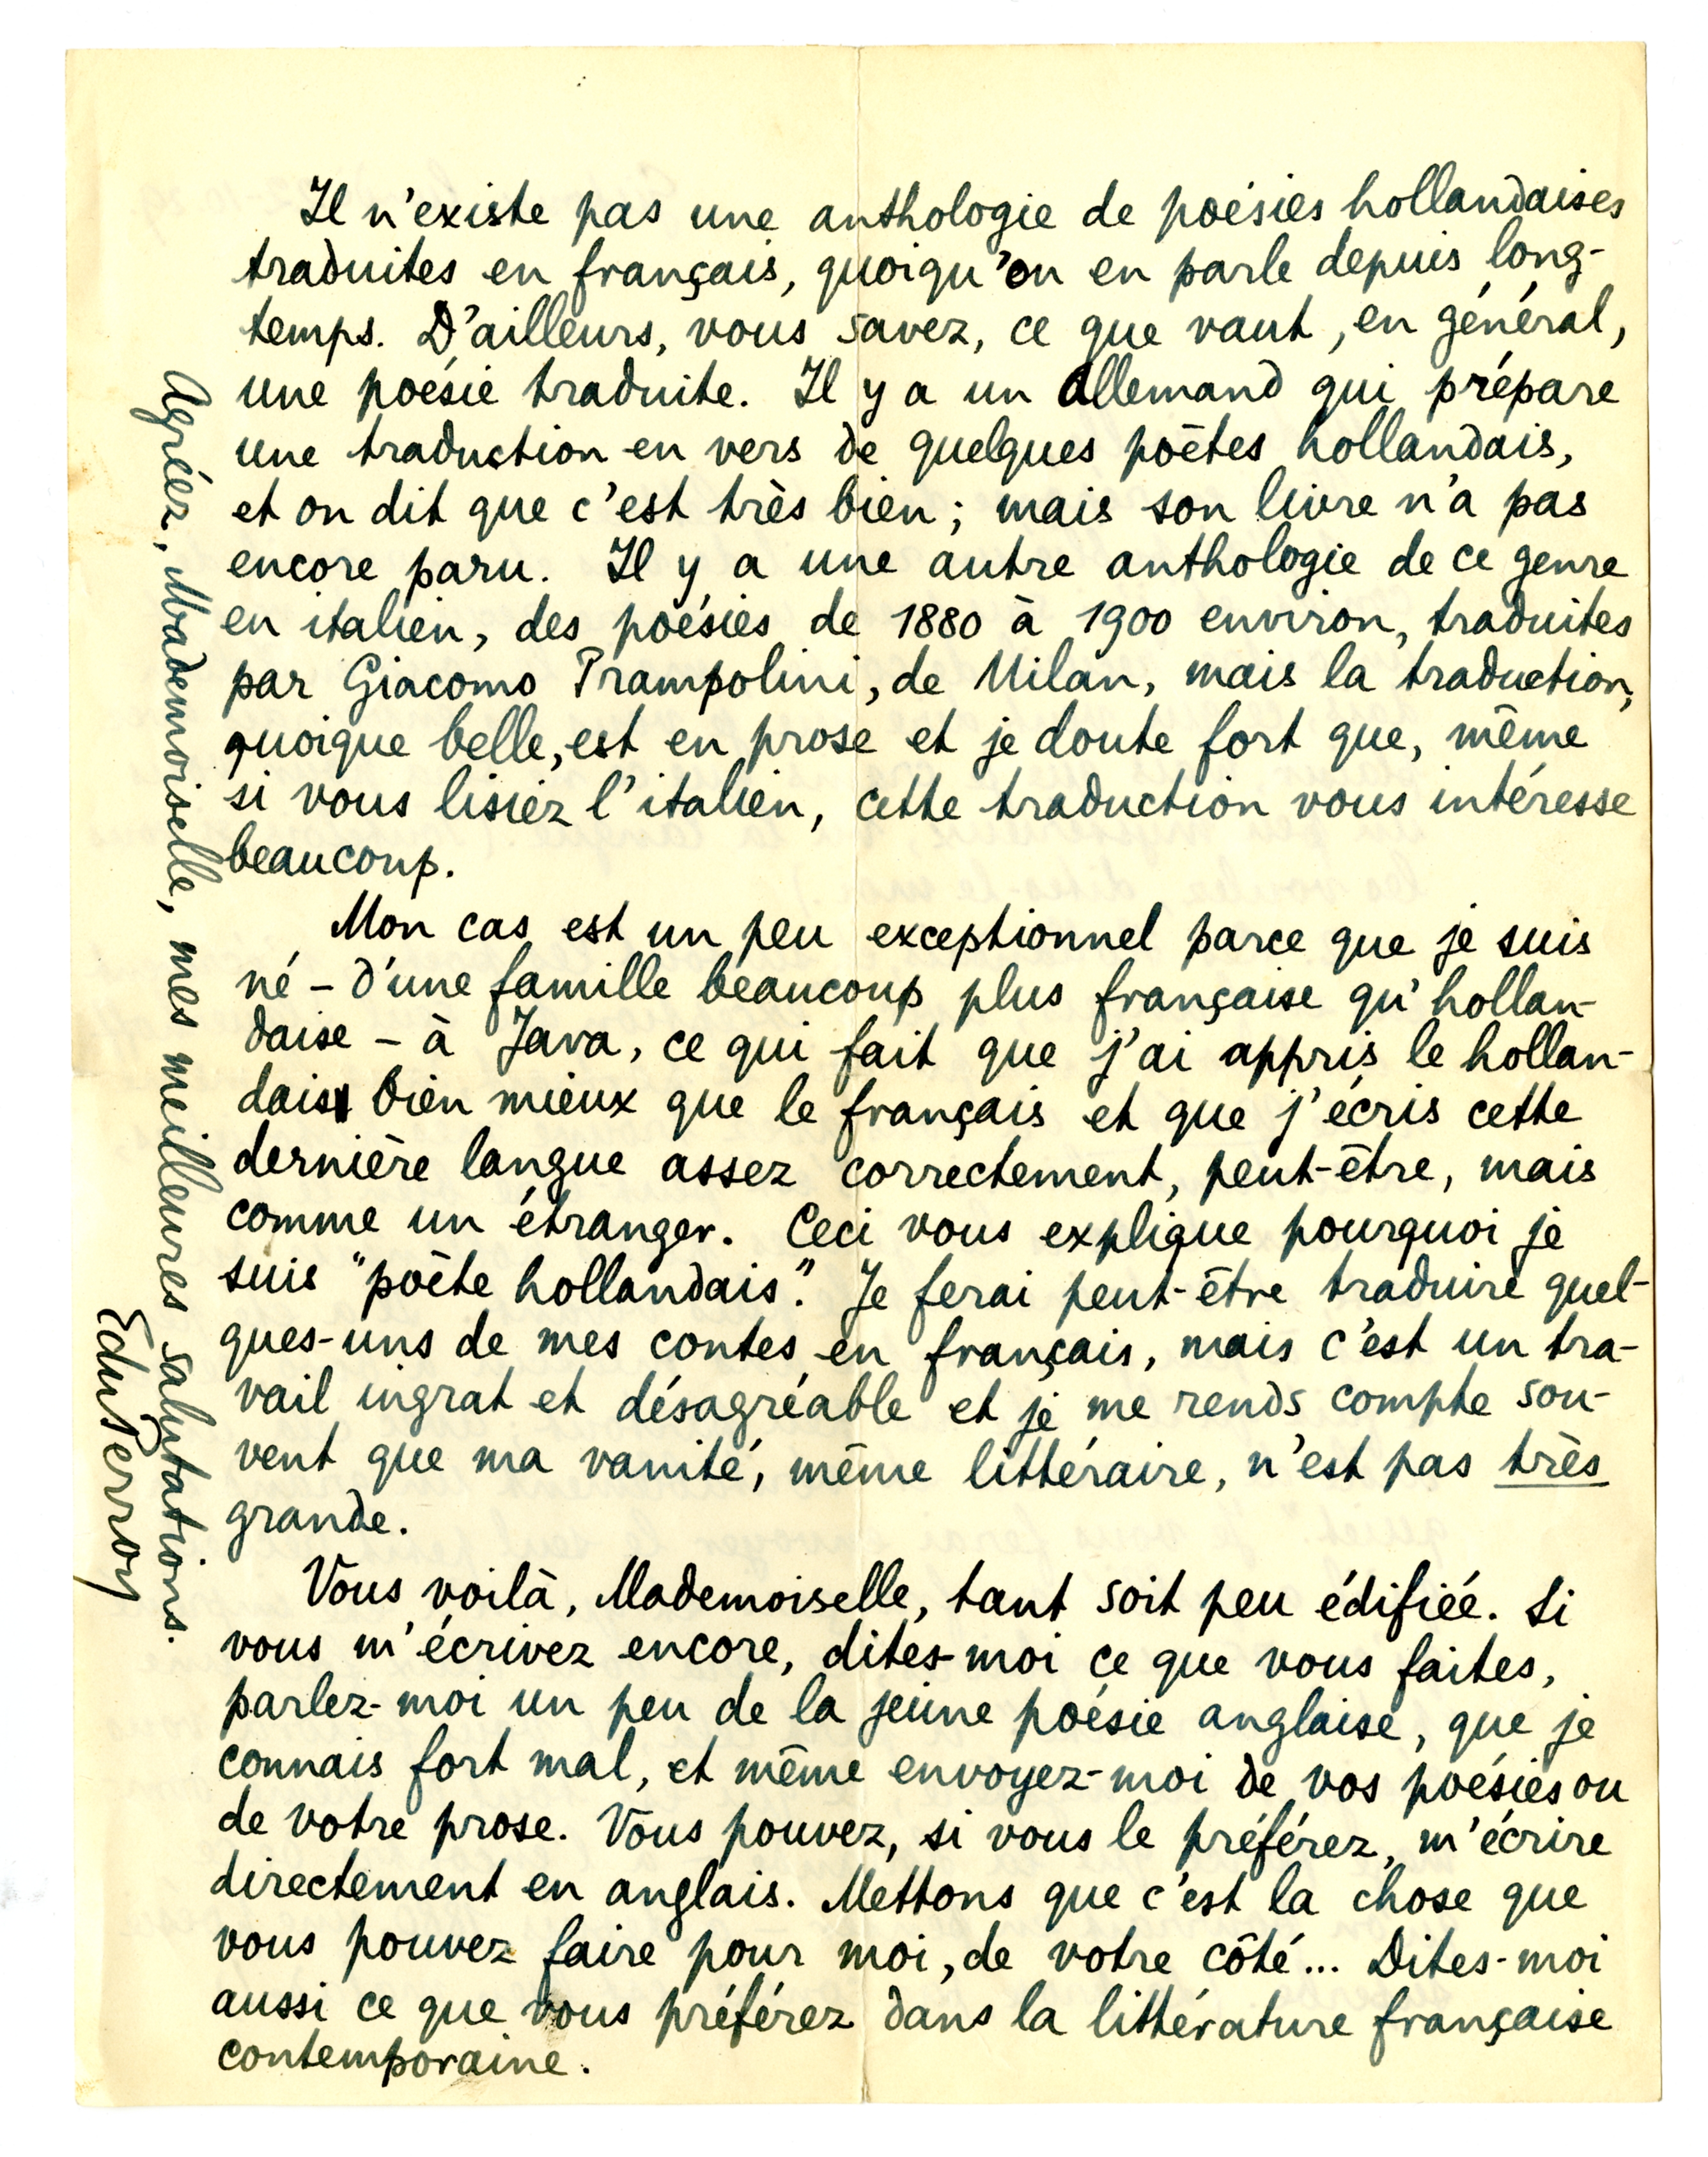 Il n'existe pas une anthologie de poésies hollandaises
traduites en français, quoiqu'on en parle depuis long-
temps. D'ailleurs, vous savez, ce que vaut, en général,
une poésie traduite. Il y a un Allemand qui prépare
une traduction en vers de quelques poètes hollandais,
et on dit que c'est très bien; mais son livre n'a pas
encore paru. Il y a une autre anthologie de ce genre
en italien, des poésies de 1880 à 1900 environ, traduites
par Giacomo Prampolini, de Milan, mais la traduction,
quoique belle, est en prose et je doute fort que, même
si vous lisiez l'italien, cette traduction vous intéresse
beaucoup.
Mon cas est un peu exceptionnel parce que je suis
né – d'une famille beaucoup plus française qu'hollan-
daise – à Java, ce qui fait que j'ai appris le hollan-
dais bien mieux que le français et que j'écris cette
dernière langue assez correctement, peut-être, mais
comme un étranger. Ceci vous explique pourquoi je
suis "poète hollandais". Je ferai peut-être traduire quel-
ques-uns de mes contes en français, mais c'est un tra-
vail ingrat et désagréable et je me rends compte sou-
vent que ma vanité, même littéraire, n'est pas très
grande.
Vous voilà, Mademoiselle, tant soit peu édifiée. Si
vous m'écrivez encore, dites-moi ce que vous faites,
parlez-moi un peu de la jeune poésie anglaise, que je
connais fort mal, et même envoyez-moi de vos poésies ou
de votre prose. Vous pouvez, si vous le préférez, m'écrire
directement en anglais. Mettons que c'est la chose que
vous pouvez faire pour moi, de votre côté... Dites-moi
aussi ce que vous préférez dans la littérature française
contemporaine.
Agréez, Mademoiselle, mes meilleures salutations.
EduPerron